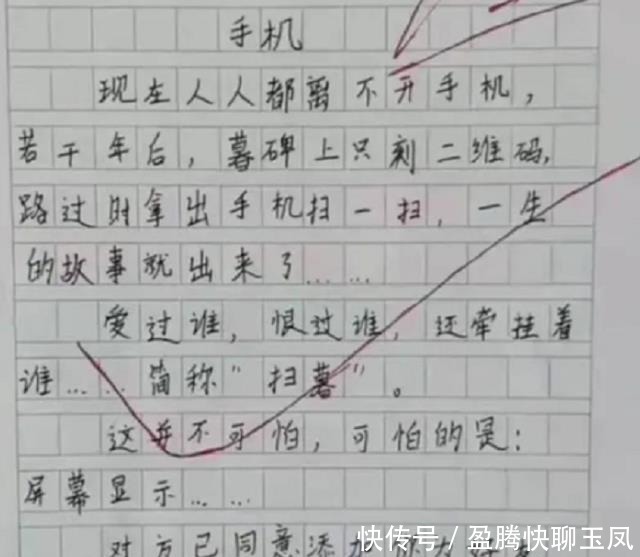 手机
现在人人都离不开手机，
若干年后，暮碑上只刻二维码，
路过时拿出手机扫一扫，一生
的故事就出来了……
爱过谁，恨过谁，还牵挂着
谁……简称"扫暮"。
这并不可怕，可怕的是：
屏幕显示……
对方已同意添加
快传号 / 盈腾快聊玉凤